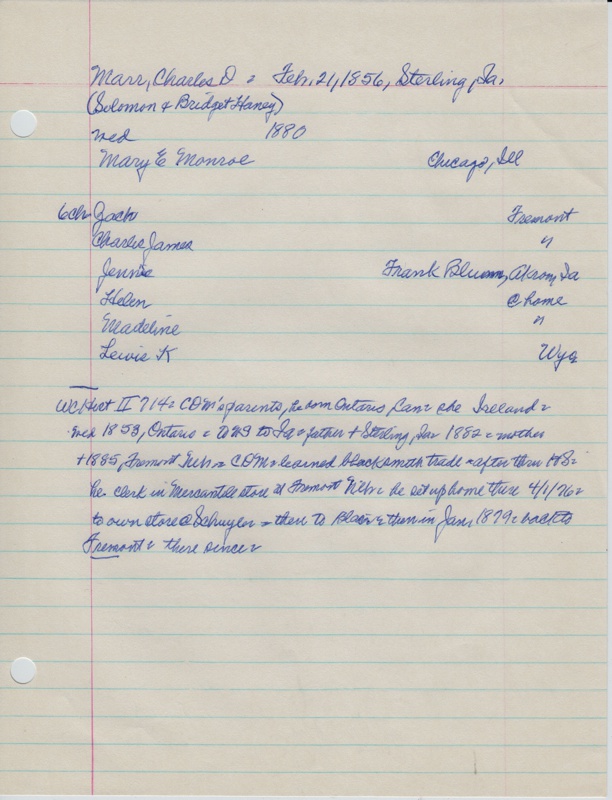 Marr, Charles D = Feb. 21, 1856, Sterling, Ia.
(Solomon & Bridget Haney)
wed 1880
Mary E Monroe Chicago, Ill
6ch Jack Fremont
Charles James "
Jennie Frank Blumm, Akron, Ia
Helen @ home
Madeline "
Lewis K Wyo
WC Hist II 714= CDM's parents, he born Ontario Can= she Ireland=
wed 1853, Ontario = to Ia = father + Sterling, Ia 1882 = mother
+ 1885, Fremont Neb = CDM = learned blacksmith trade = after thru HS=
he clerk in Mercantile store at Fremont Neb = he set up home there 4/1/76=
to own store @ Schuyler = then to Blair & then in Jan, 1879= back to
Fremont= there since=